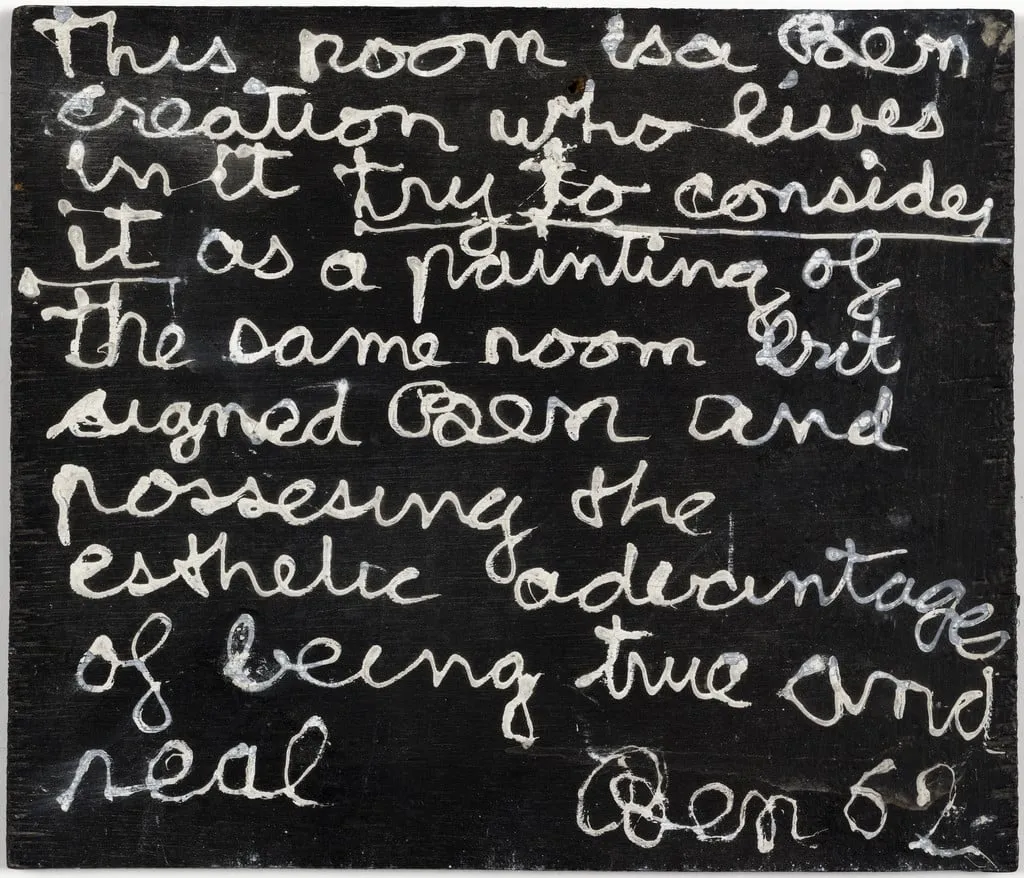 This room isa Ben
creation who lives
in it try to consider
it as a painting of
the same room but
signed Ben and
possesing the
esthetic advantage
of being true and
real Ben 62